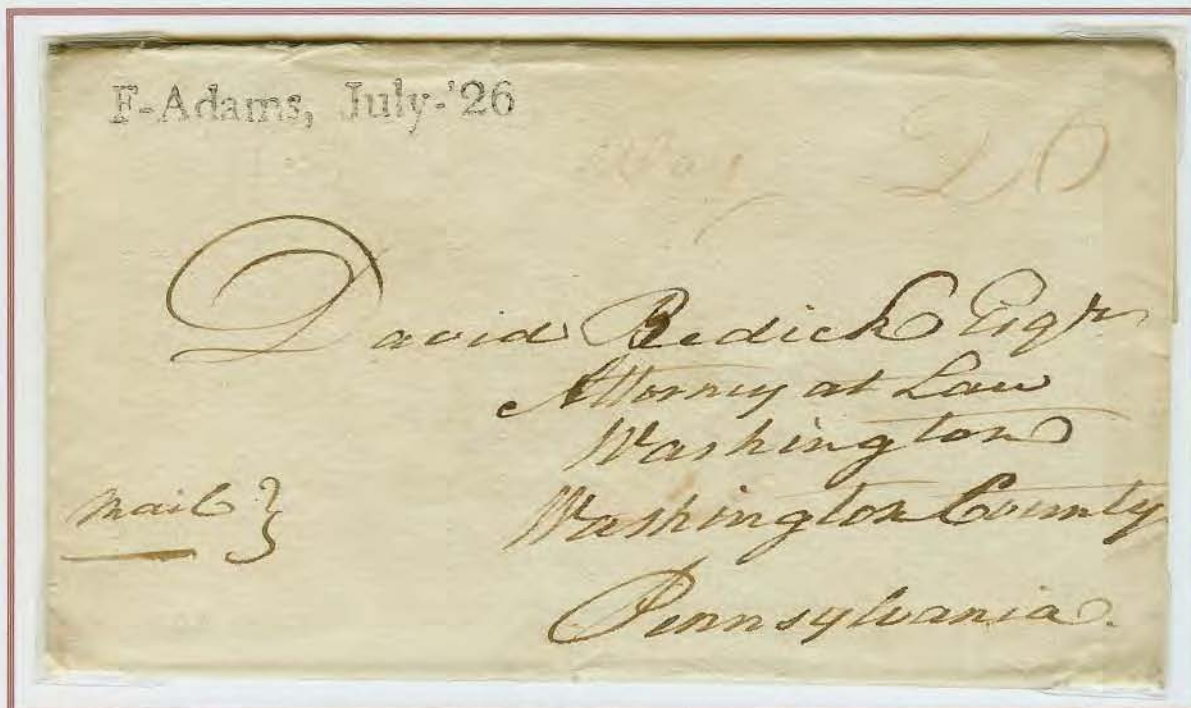 F-Adams, July-'26
20
David Redick Esqr
Attorney at Law
Washington
mail }
Washington County
Pennsylvania.